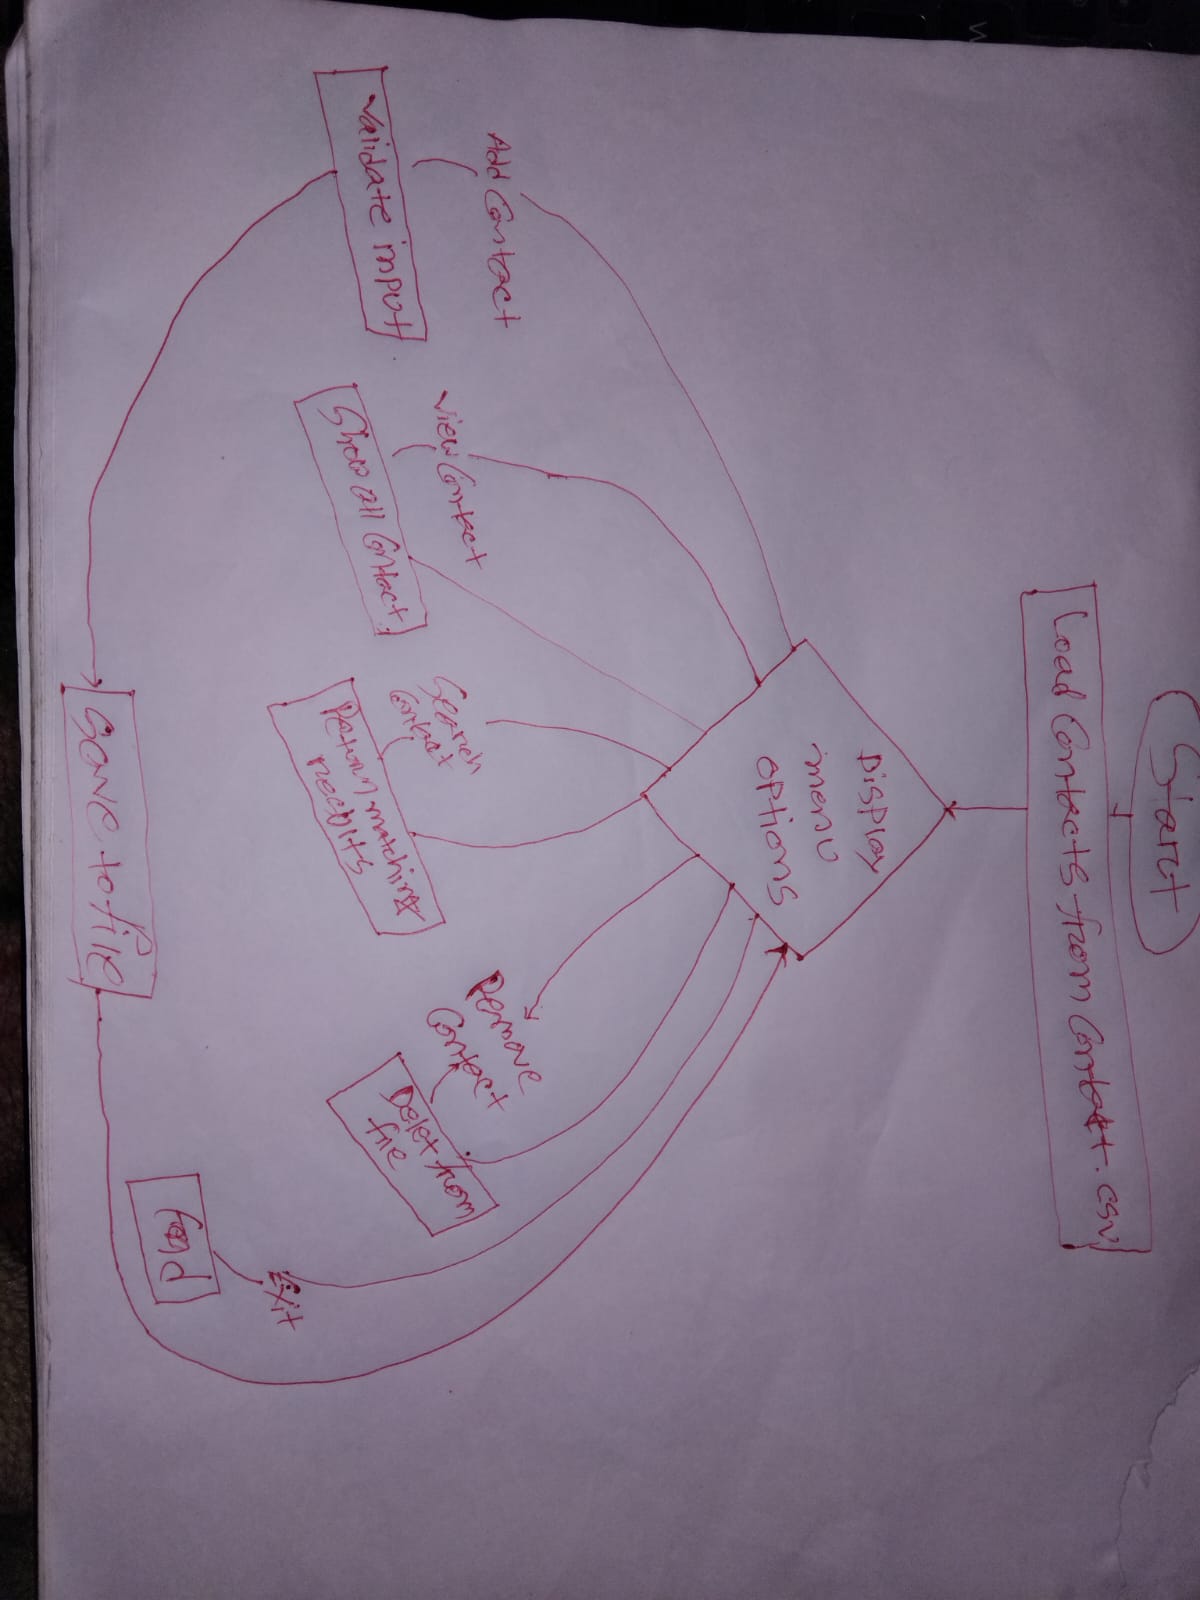 Start
Load Contacts from Contact.csv
Display
menu
options
Add Contact
Validate input
View Contact
Show all Contact.
Search
Contact
Return matching
Remove
Contact
Delet from
file
Exit
End
Save to file